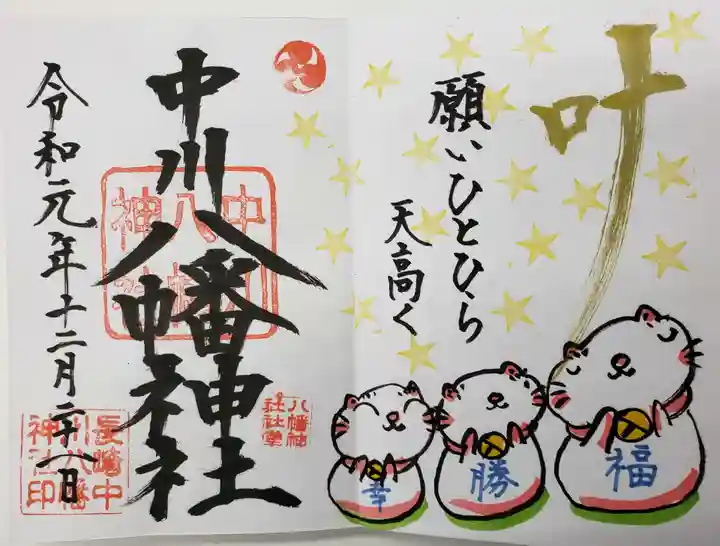 叶
願いひとひら
天高く
福
勝
幸
中川八幡神社
八幡神
社社章
中川八幡神社
令和元年十二月二十一日
長崎中
川八幡
神社印